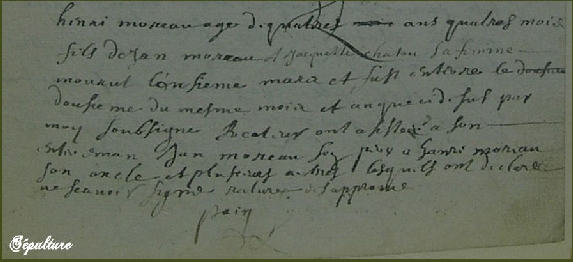 henri moreau age de quatres ans quatres mois
fils de Jan moreau et Jacquette chatin sa femme
mourut l'onsieme mars et fust enterre le
dousieme du mesme mois et an que cidesus par
moy soubsigne vicaire ont assisté a son
enterreman Jan moreau son pere et henri moreau
son oncle et plusieurs autres lesquels ont declare
ne scavoir signe rature desaprouve
Sépulture